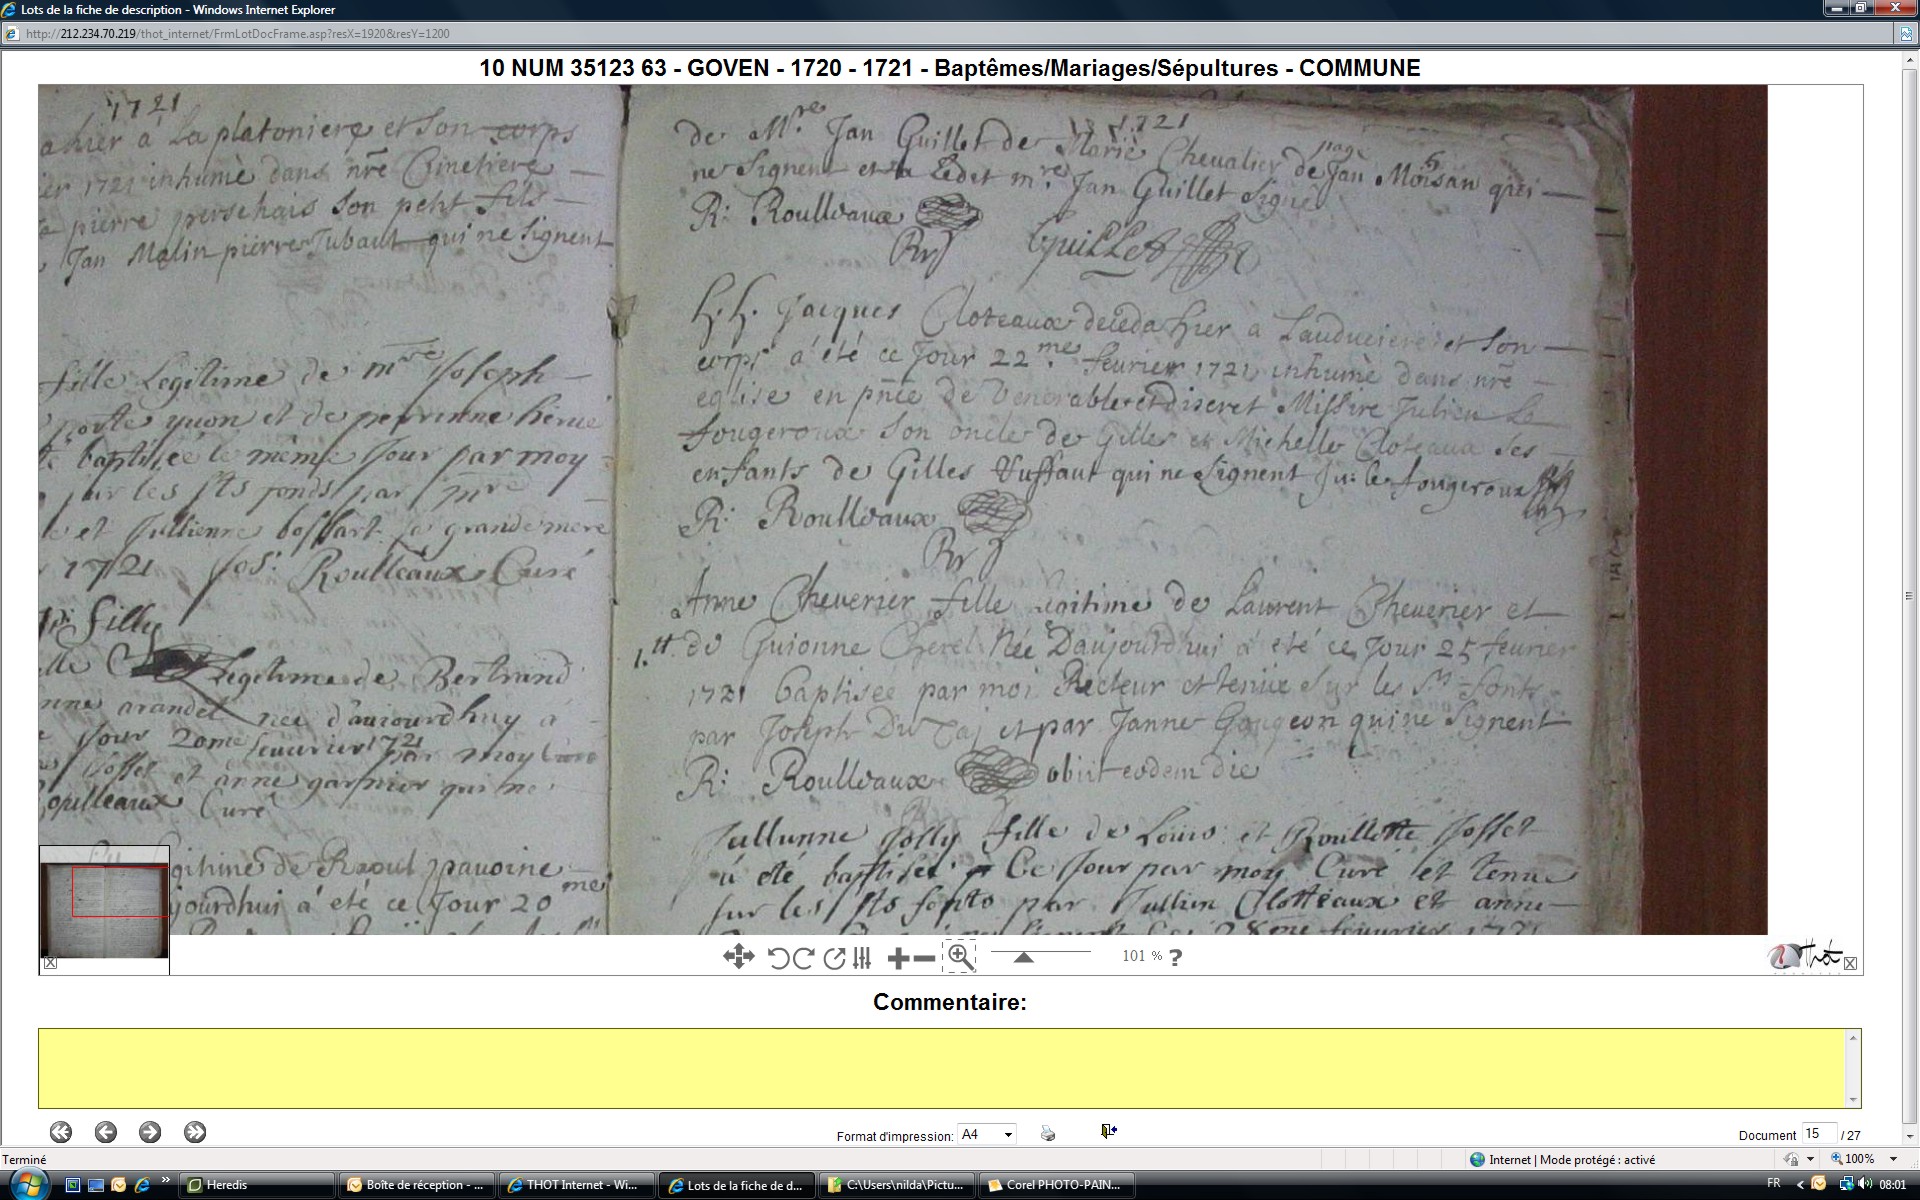 Lots de la fiche de description - Windows Internet Explorer
http://212.234.70.219/thot_internet/FrmLotDocFrame.asp?resX=1920&resY=1200
10 NUM 35123 63 - GOVEN - 1720 - 1721 - Baptêmes/Mariages/Sépultures - COMMUNE
1721
à La platoniere et son corps
1721 inhumè dans nre Cimetiere
pierre persehais son petit fils
Jan Malin pierre Jubaut qui ne signent
fille Legitime de mre Joseph
yuon et de perrinne hervé
baptisée le même Jour par moy
sur les sts fonds par
et Jullienne bossart sa grande mere
1721 Jos: Roulleaux Curé
filly
Legitime de Bertrand
arandel née d'aujourdhuy à
Jour 20me feuvrier 1721 par moy
et anne garnier qui ne
Curé
de Raoul pavoine
à été ce Jour 20me
1721
page 5
de Mre Jan Guillet de Marie Chevalier de Jan Moisan qui
ne signent et Ledet mre Jan Guillet signe
R: Roulleaux
Rr
Guillet
h.h. Jacques Cloteaux deceda hier a Lauduciere et son
corps a été ce Jour 22me fevrier 1721 inhumè dans nre
eglise en pnce de venerable et discret Missire Julien Le
fougeroux son oncle de Gilles et Michelle Cloteaux ses
enfants de Gilles Vuffaut qui ne signent Ju: le fougeroux
R: Roulleaux
Rr
Anne Cheverier fille legitime de Laurent Cheverier et
de Guionne Cherel Née Daujourdhui a été ce Jour 25 fevrier
1721 baptisée par moi Recteur et tenüe sur les Sts fonts
par Joseph Du Taj et par Janne Gougeon qui ne signent
R: Roulleaux obiit eodem die
Jullienne Jolly fille de Louis et Rouillette Josset
a été baptisée Ce Jour par moy Curé et tenue
sur les sts fonts par Jullien Clotteaux et anne
28me feuvrier 1721
101 % ?
Thot
Commentaire:
Format d'impression: A4
Document 15 / 27
Terminé
Internet | Mode protégé : activé
100%
Heredis
Boîte de réception - ...
THOT Internet - Wi...
Lots de la fiche de d...
C:\Users\nilda\Pictu...
Corel PHOTO-PAIN...
FR
08:01